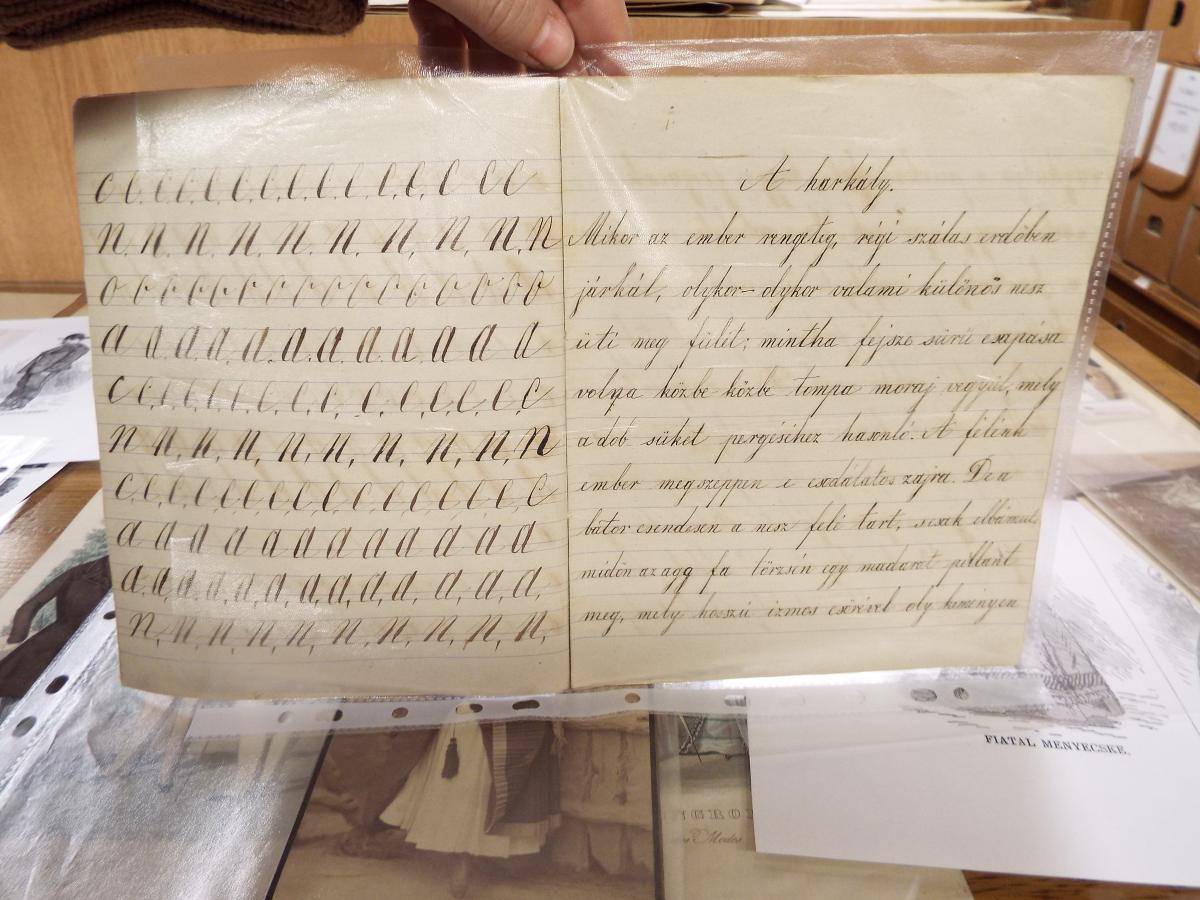 C C C C C C C C C C C C C C
n n n n n n n n n n
o o o o o o o o o o o o o o o
a a a a a a a a a a a a
C C C C C C C C C C C C C
n n n n n n n n n n n
C C C C C C C C C C C C C C C
a a a a a a a a a a a a
a a a a a a a a a a a a a a
n n n n n n n n n n n
A harkály.
Mikor az ember rengeteg, régi szálas erdőben
járkál, olykor-olykor valami különös nesz
üti meg fülét; mintha fejsze sűrű csapása
volna közbe közbe tompa moraj vegyül, mely
a dob süket pergéséhez hasonló. A félénk
ember megszeppen e csodálatos zajra. De a
bátor csendesen a nesz felé tart, s csak elbámul,
midőn az agg fa törzsén egy madarat pillant
meg, mely hosszú izmos csőrével oly keményen
FIATAL MENYECSKE.
Modes